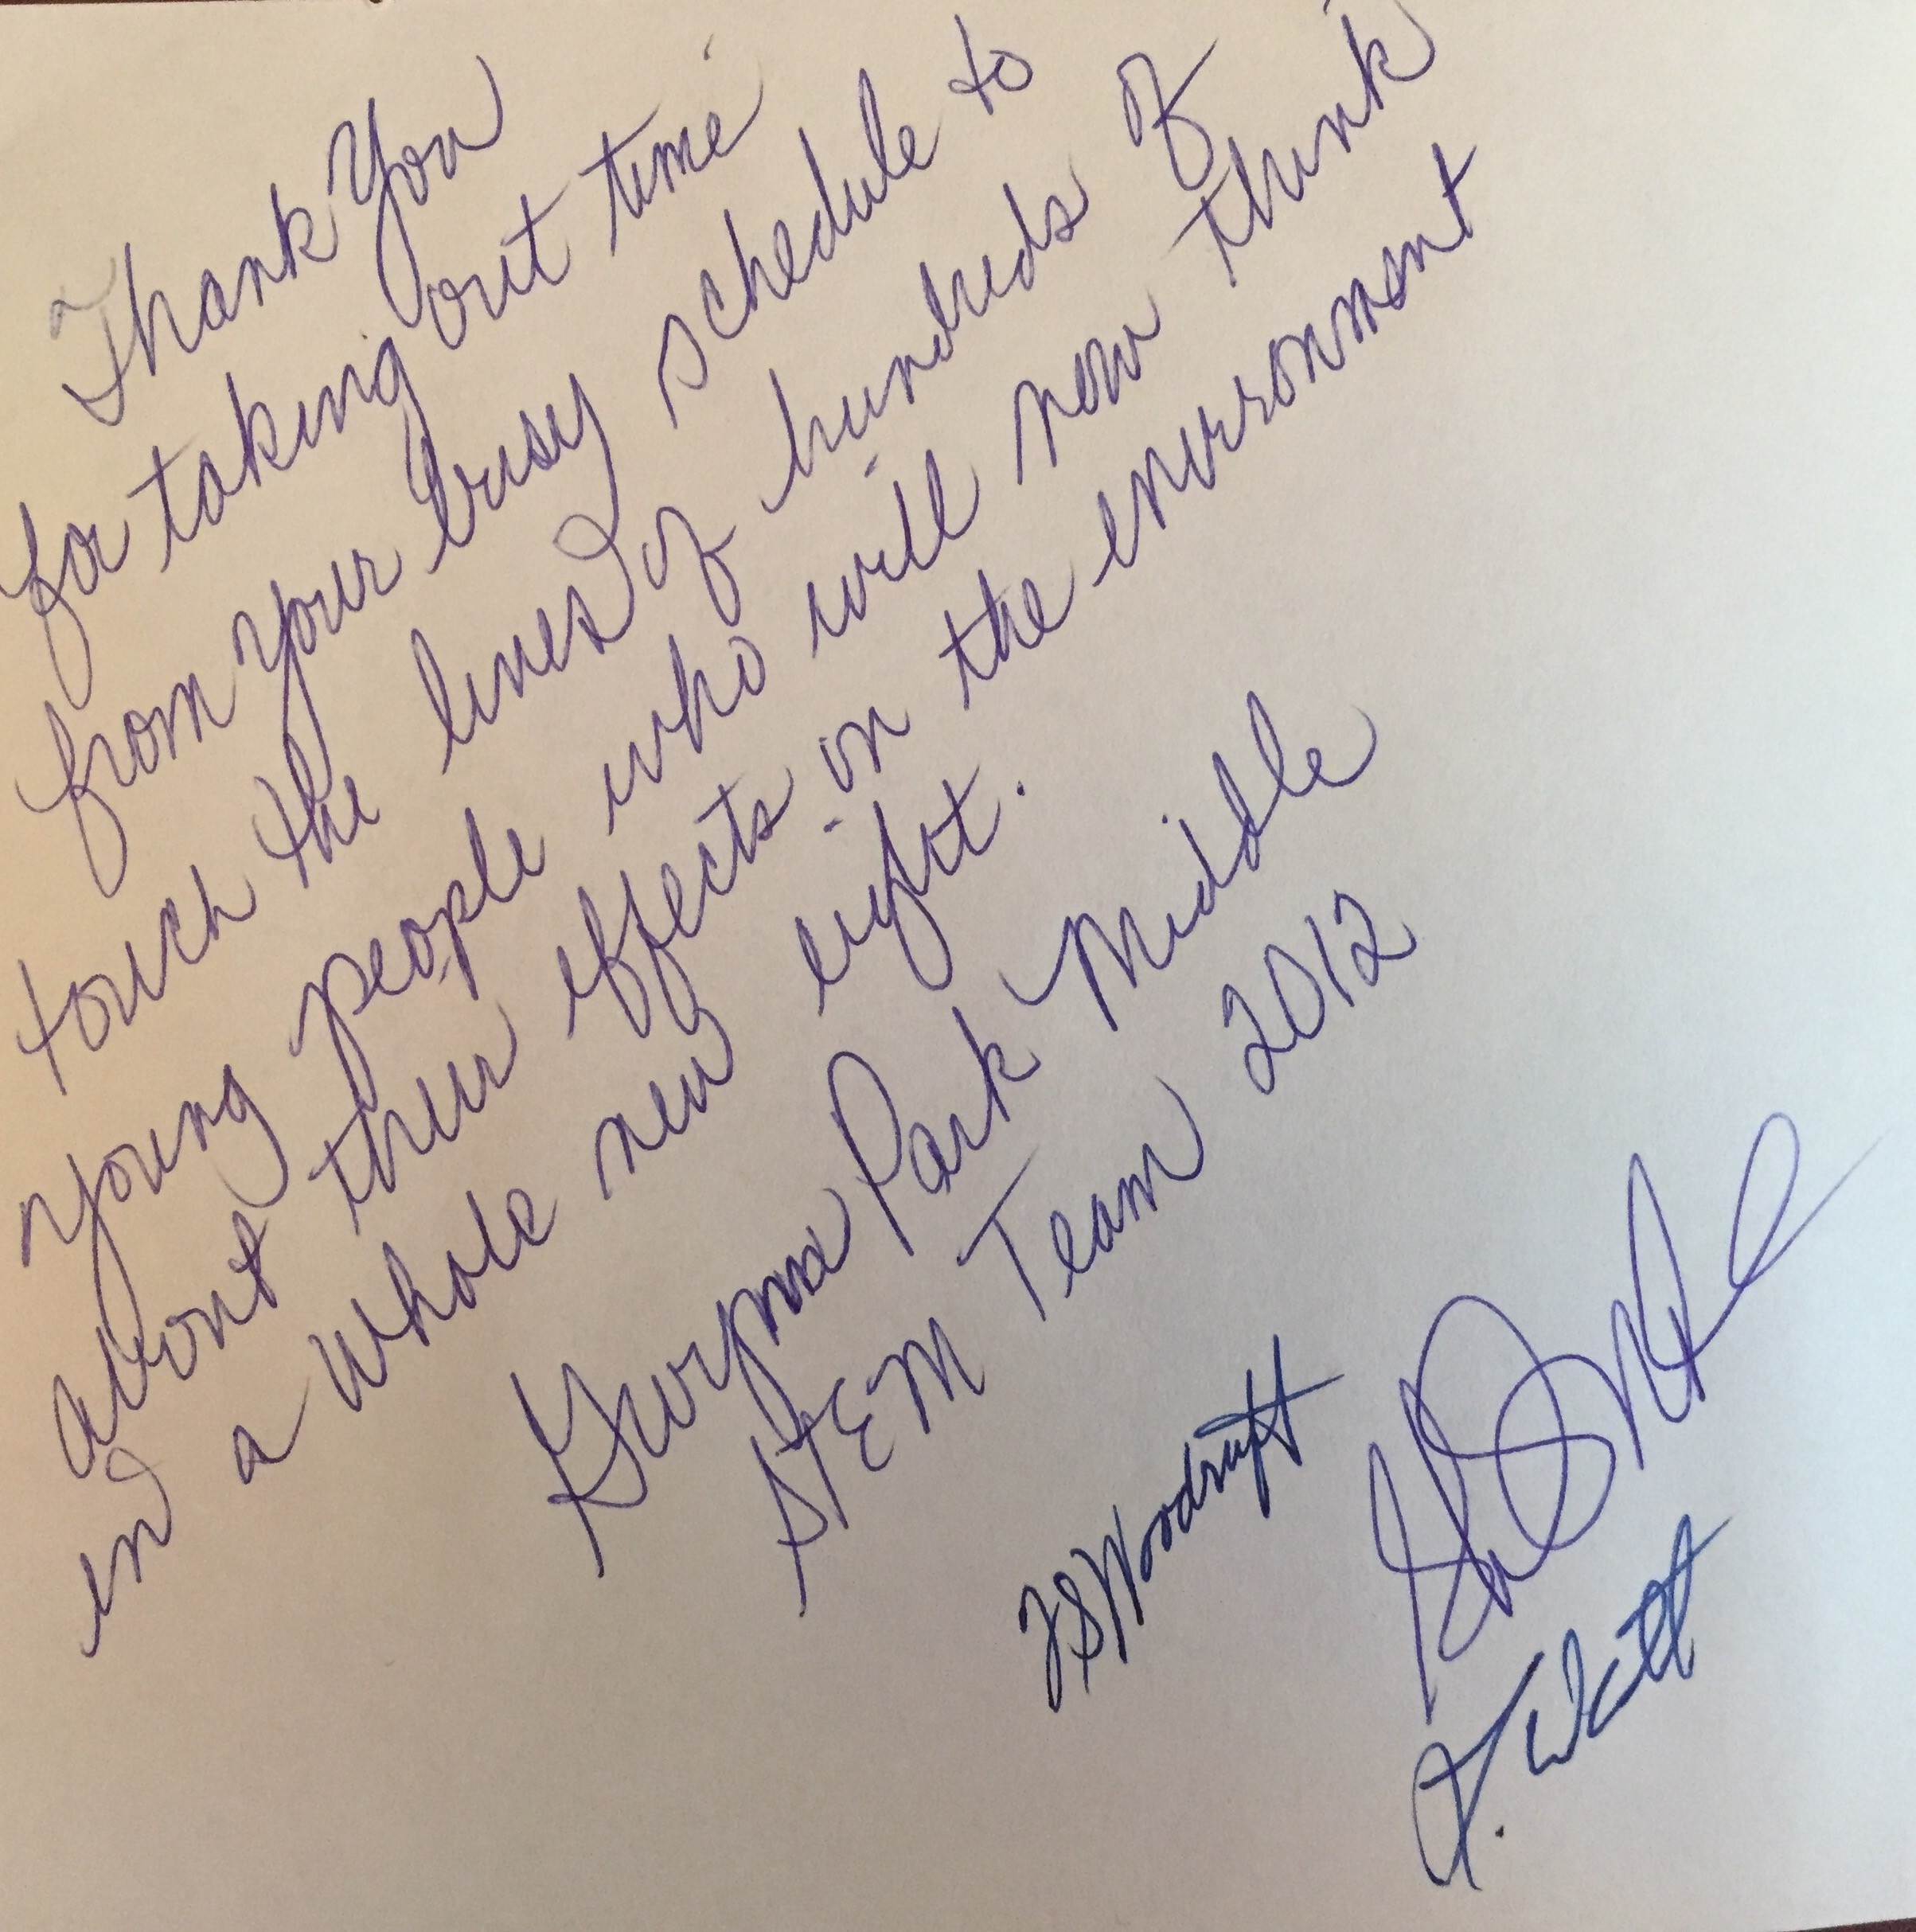 Thank You
for taking out time
from your busy schedule to
touch the lives of hundreds of
young people who will now think
about their effects on the environment
in a whole new light.
Gwynn Park Middle
STEM Team 2012
Woodruff